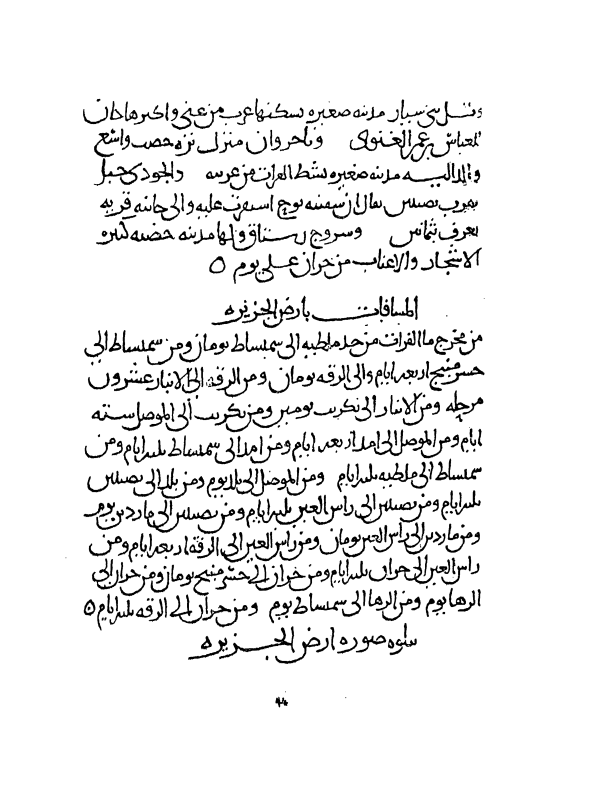 وتل بني سيار مدينه صغيره يسكنها عرب من غني واكثرها كان
للعباس بن عمر الغنوي وباجروان منزل نزه خصب واسع
والداليه مدينه صغيره بشط الفرات من غربيه والجودي جبل
بقرب نصيبين يقال ان سفينه نوح استوت عليه والى جانبه قريه
تعرف بثمانين وسروج رستاق ولها مدينه خصبه كثيره
الاشجار والاعناب من حران على يوم ٥
المسافات بارض الجزيره
من مخرج ما الفرات من حد ملطيه الى سميساط يومان ومن سميساط الى
جسر منبج اربعه ايام والى الرقه يومان ومن الرقه الى الانبار عشرون
مرحله ومن الانبار الى تكريت يومين ومن تكريت الى الموصل سته
ايام ومن الموصل الى امد اربعه ايام ومن امد الى سميساط ثلثه ايام ومن
سميساط الى ملطيه ثلثه ايام ومن الموصل الى بلد يوم ومن بلد الى نصيبين
ثلثه ايام ومن نصيبين الى راس العين ثلثه ايام ومن نصيبين الى ماردين يوم
ومن ماردين الى راس العين يومان ومن راس العين الى الرقه اربعه ايام ومن
راس العين الى حران ثلثه ايام ومن حران الى جسر منبج يومان ومن حران الى
الرها يوم ومن الرها الى سميساط يوم ومن حران الى الرقه ثلثه ايام ٥
يتلوه صوره ارض الجزيره